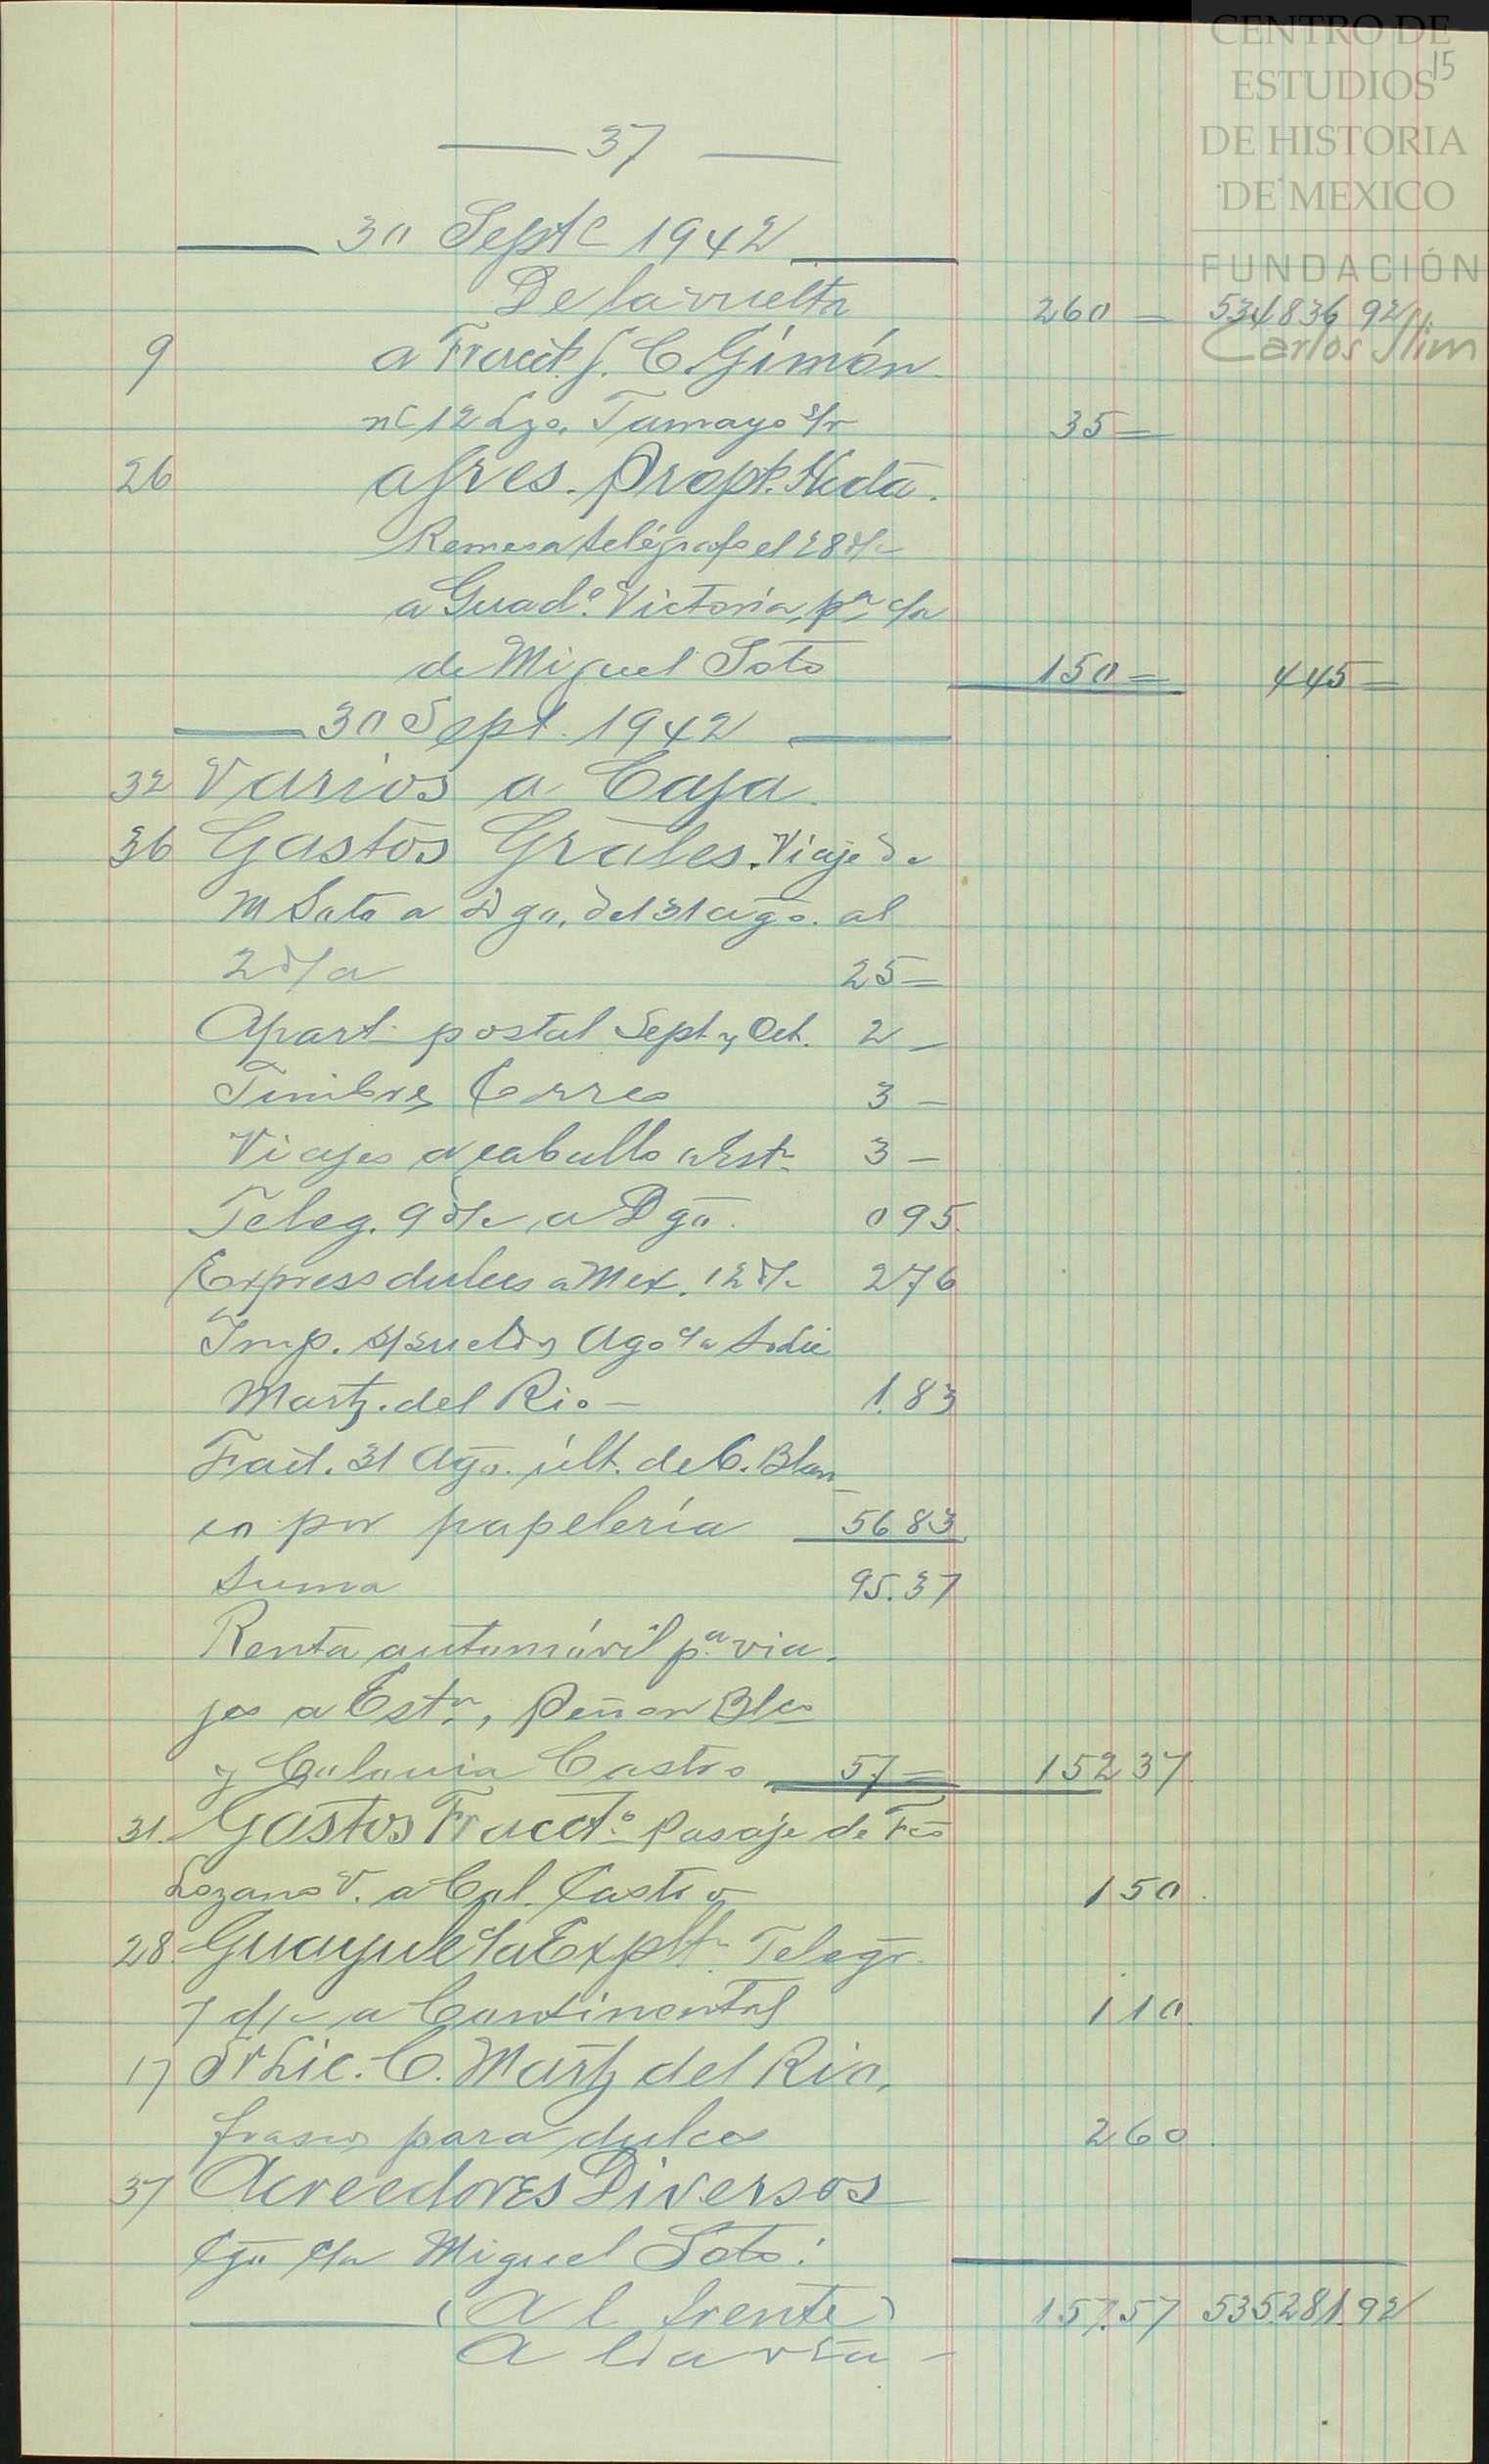 CENTRO DE
ESTUDIOS
DE HISTORIA
DE MEXICO
FUNDACIÓN
Carlos Slim
15
37
30 Septe 1942
De la vuelta 260 — 534836 92
9 a Fracct. S. C. Gimón
n° 12 Lzo. Tamayo s/r 35 —
26 a Sres. Propt. Hda.
Remesa telégrafo el 28 d/c
a Guade. Victoria, pa c/a
de Miguel Soto 150 — 445 —
30 Sept. 1942
32 Varios a Caja
36 Gastos Grales. Viaje de
M Soto a Dgo. del 31 ago. al
2 d/a 25 —
Apart. postal Sept y Oct. 2 —
Timbres Correo 3 —
Viajes a caballo a Estn. 3 —
Teleg. 9 d/c a Dgo. 0 95
Express dulces a Mex. 12 d/c 2 76
Imp. s/sueldos Ago c/a
Martz. del Rio — 1.83
Fact. 31 Ago. últ. de C. Blan
co por papelería 56 83
Suma 95.37
Renta automóvil pa. via-
jes a Estn., Peñon Blco
y Colonia Castro 57 — 152 37
31. Gastos Fracto. Pasaje de Fco
Lozano V. a Col. Castro 1 50
28. Guayule c/a Expltn. Telegr.
7 d/c a Continental 1 10
17 Sr Lic. C. Martz del Rio,
frascos para dulces 2 60
37 Acreedores Diversos
c/a Miguel Soto:
(Al frente) 157.57 535.281.92
A la vta —